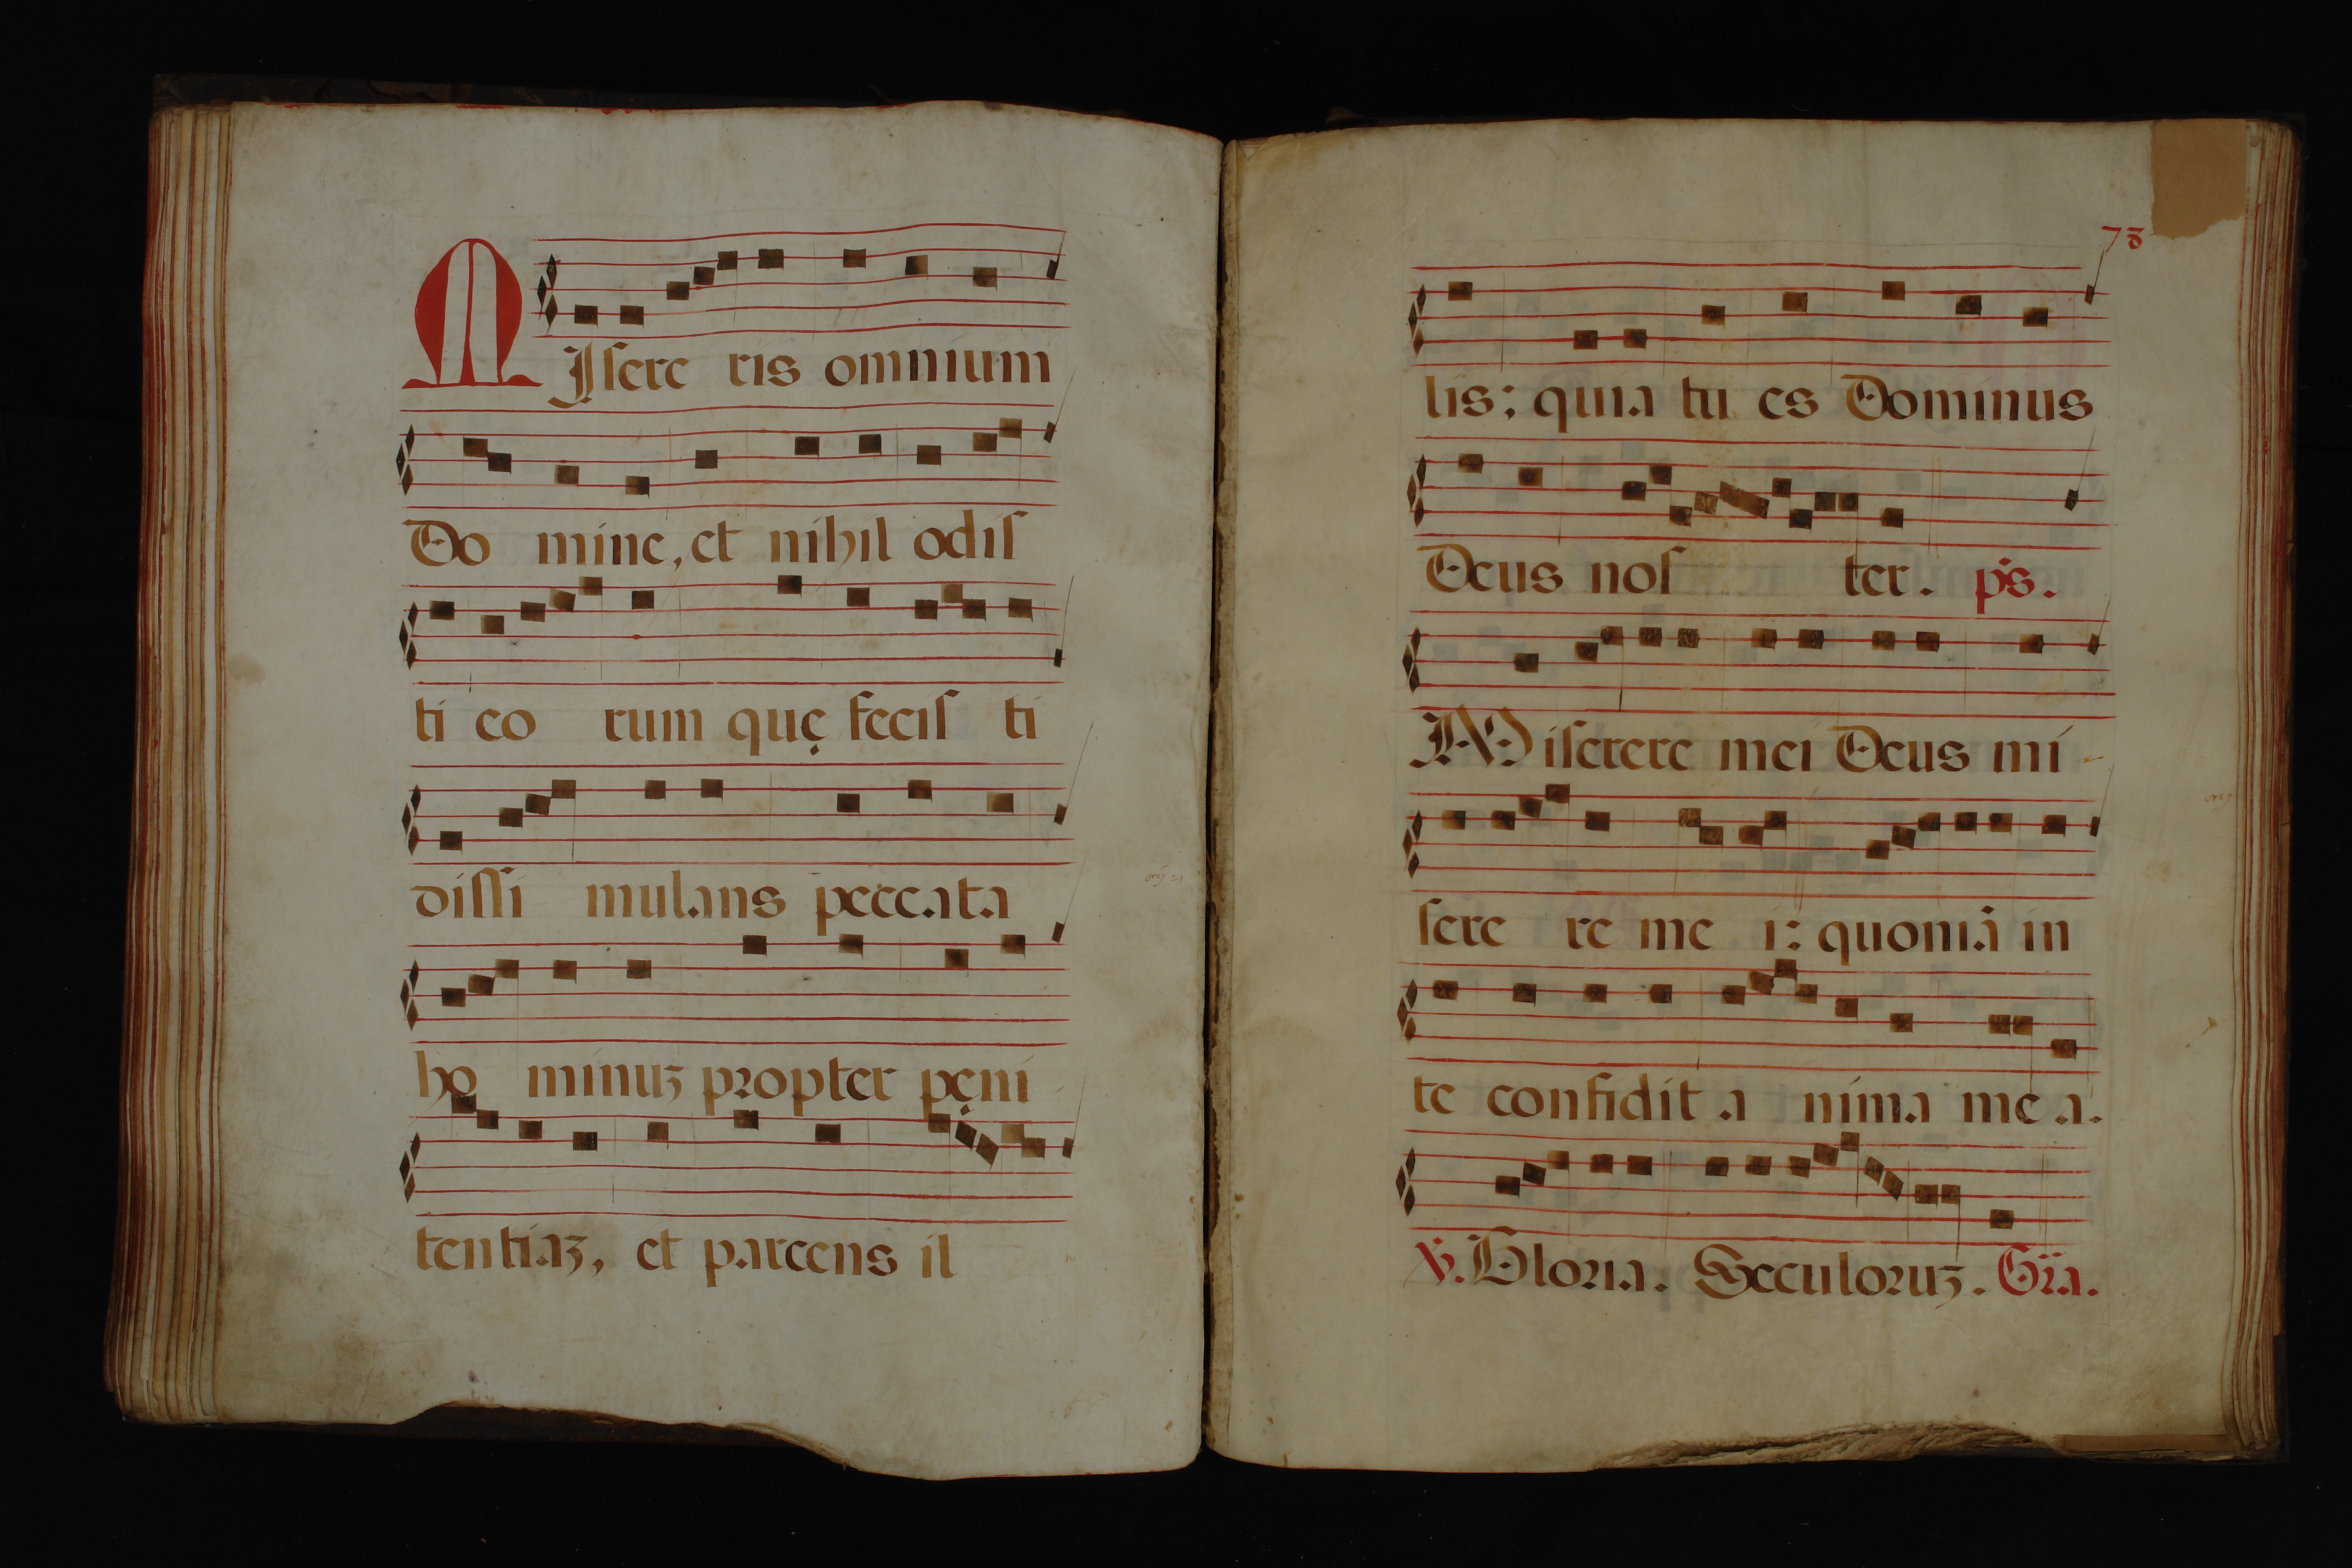 MIſere ris omnium
Do mine, et nihil odiſ
ti eo rum quę feciſ ti
diſſi mulans peccata
ho minuꝫ propter pęni
tentiaꝫ, et parcens il
78
lis; quia tu es Dominus
Deus noſ ter. ps.
Miſerere mei Deus mi-
ſere re me i: quoniã in
te confidit a nima me a.
℣. Gloria. Seculoruꝫ. Gr̃a.